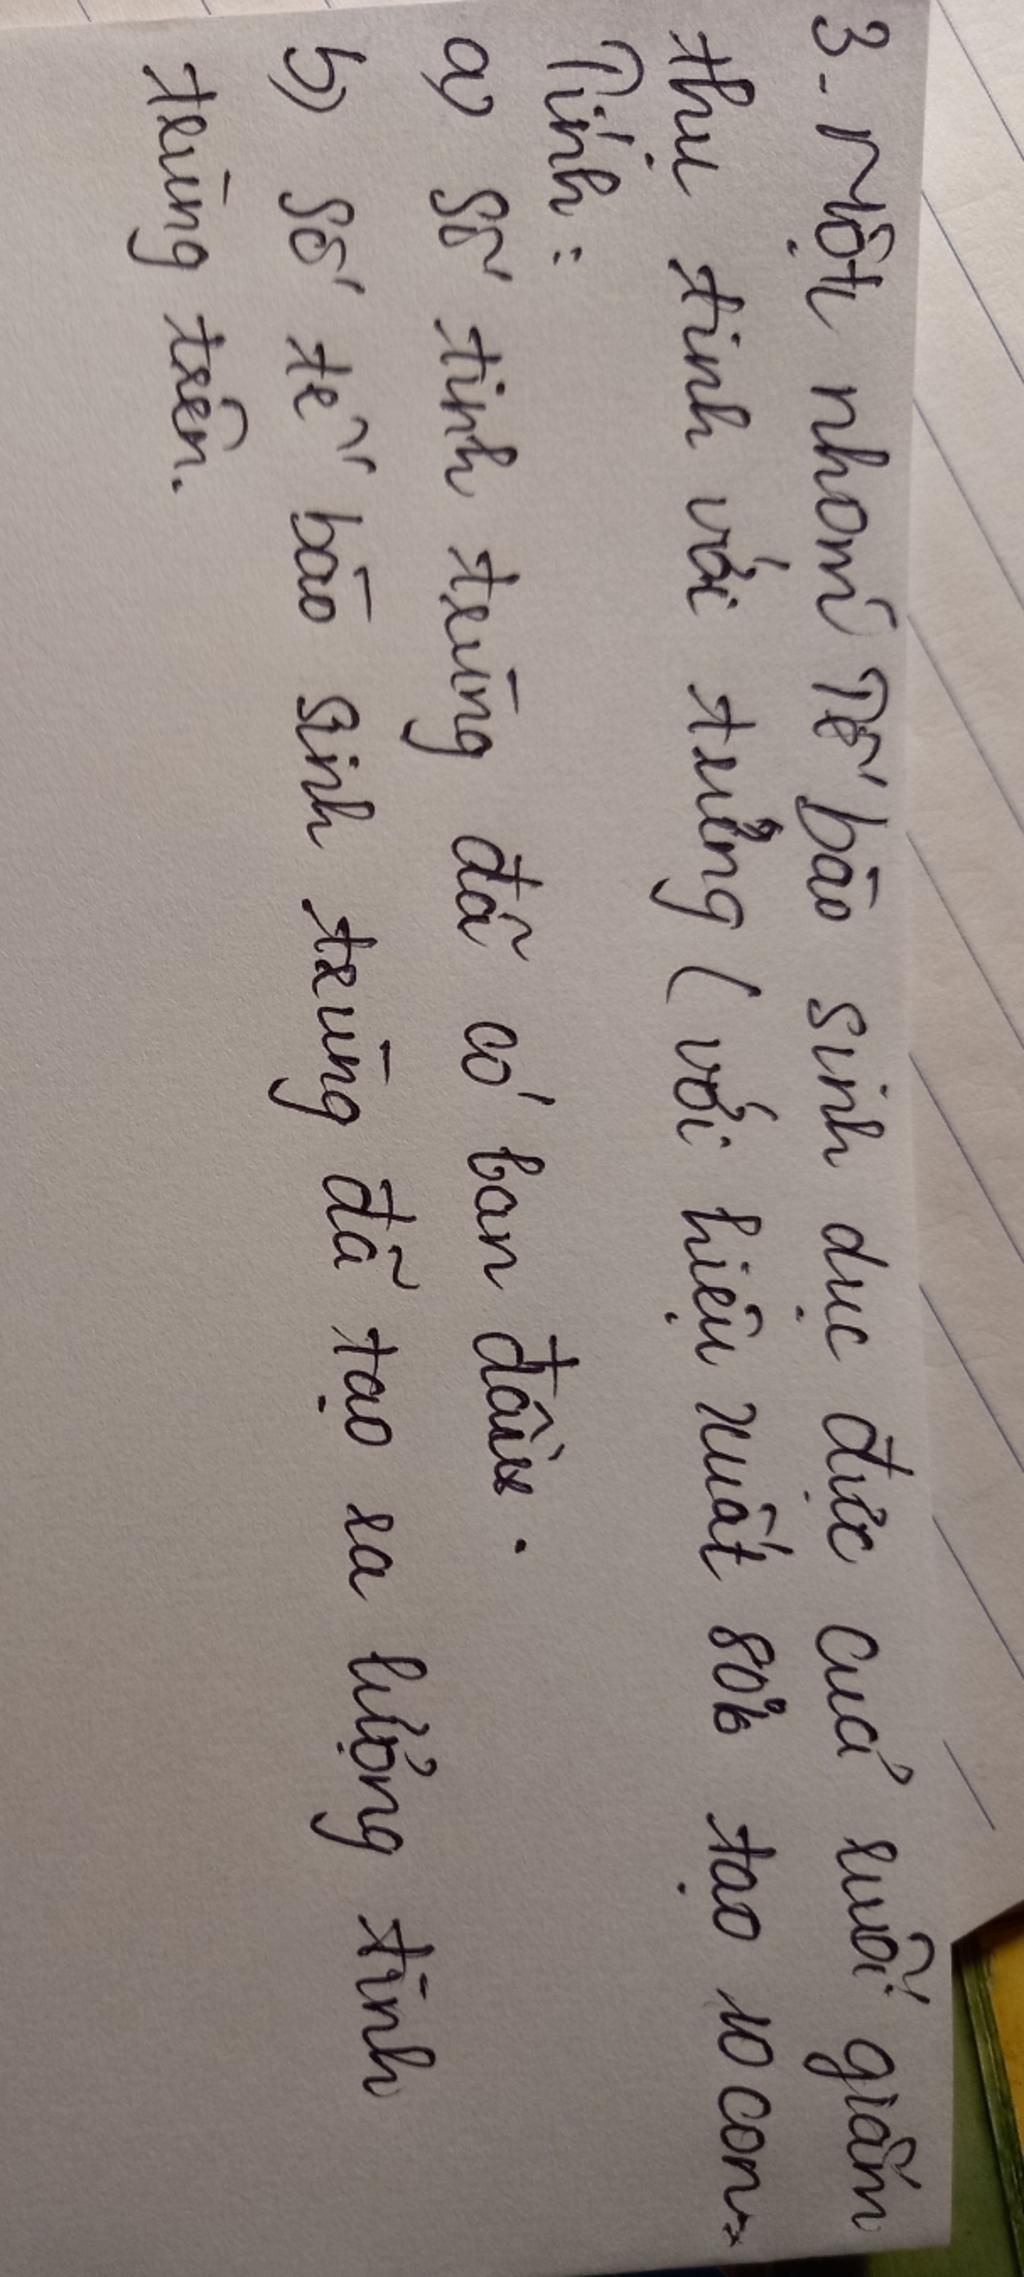 3. Một nhóm Tế bào sinh dục đực của ruồi giấm
thụ tinh với trứng (với hiệu xuất 80% tạo 10 con.
Tính:
a) Số tinh trùng đã có ban đầu.
b) Số tế bào sinh trùng đã tạo ra lượng tinh
trùng trên.